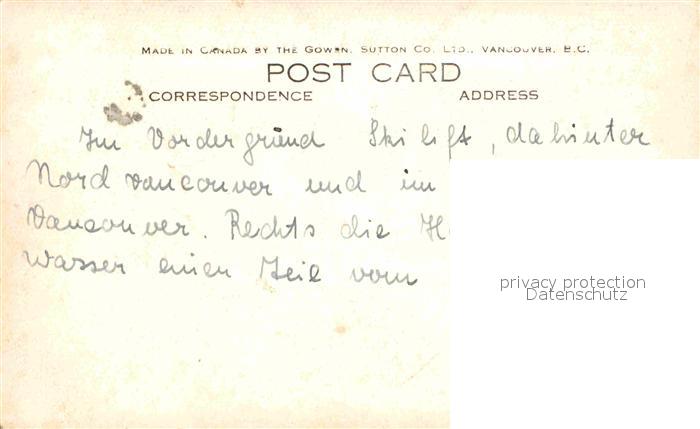 MADE IN CANADA BY THE GOWEN, SUTTON CO. LTD., VANCOUVER, B.C.
POST CARD
CORRESPONDENCE ADDRESS
Im Vordergrund Ski lift, dahinter
Nord vancouver und im
Vancouver. Rechts die
wasser einen Teil vom
privacy protection
Datenschutz